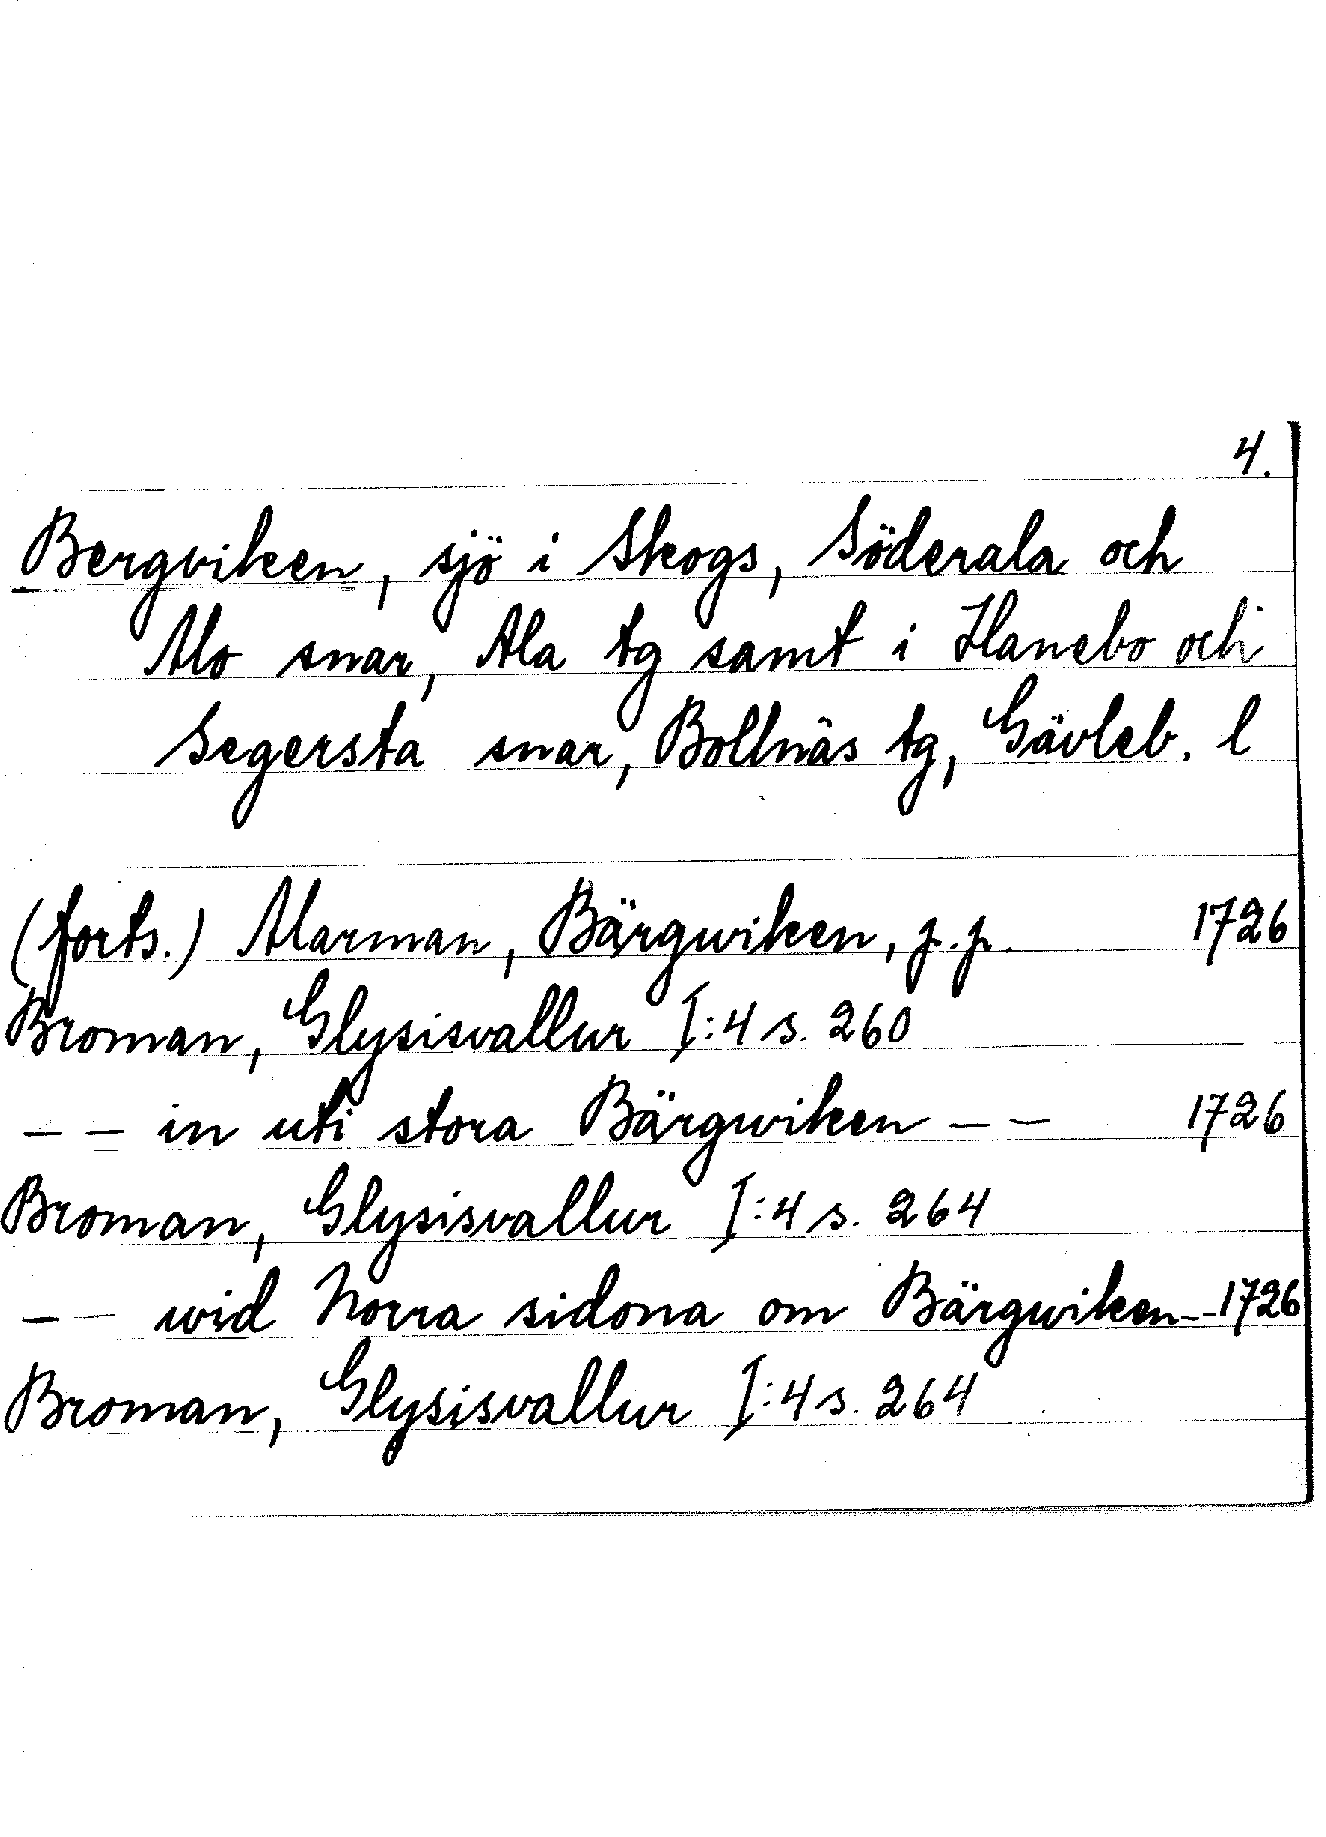 4.
Bergviken, sjö i Skogs, Söderala och
Alo snar, Ala tg samt i Hanebo och
Segersta snar, Bollnäs tg, Gävleb. l
(forts.) Alarman, Bärgwiken, p.p. 1726
Broman, Glysisvallur I:4 s. 260
– – in uti stora Bärgwiken – – 1726
Broman, Glysisvallur I:4 s. 264
– – wid Norra sidona om Bärgwiken – – 1726
Broman, Glysisvallur I:4 s. 264